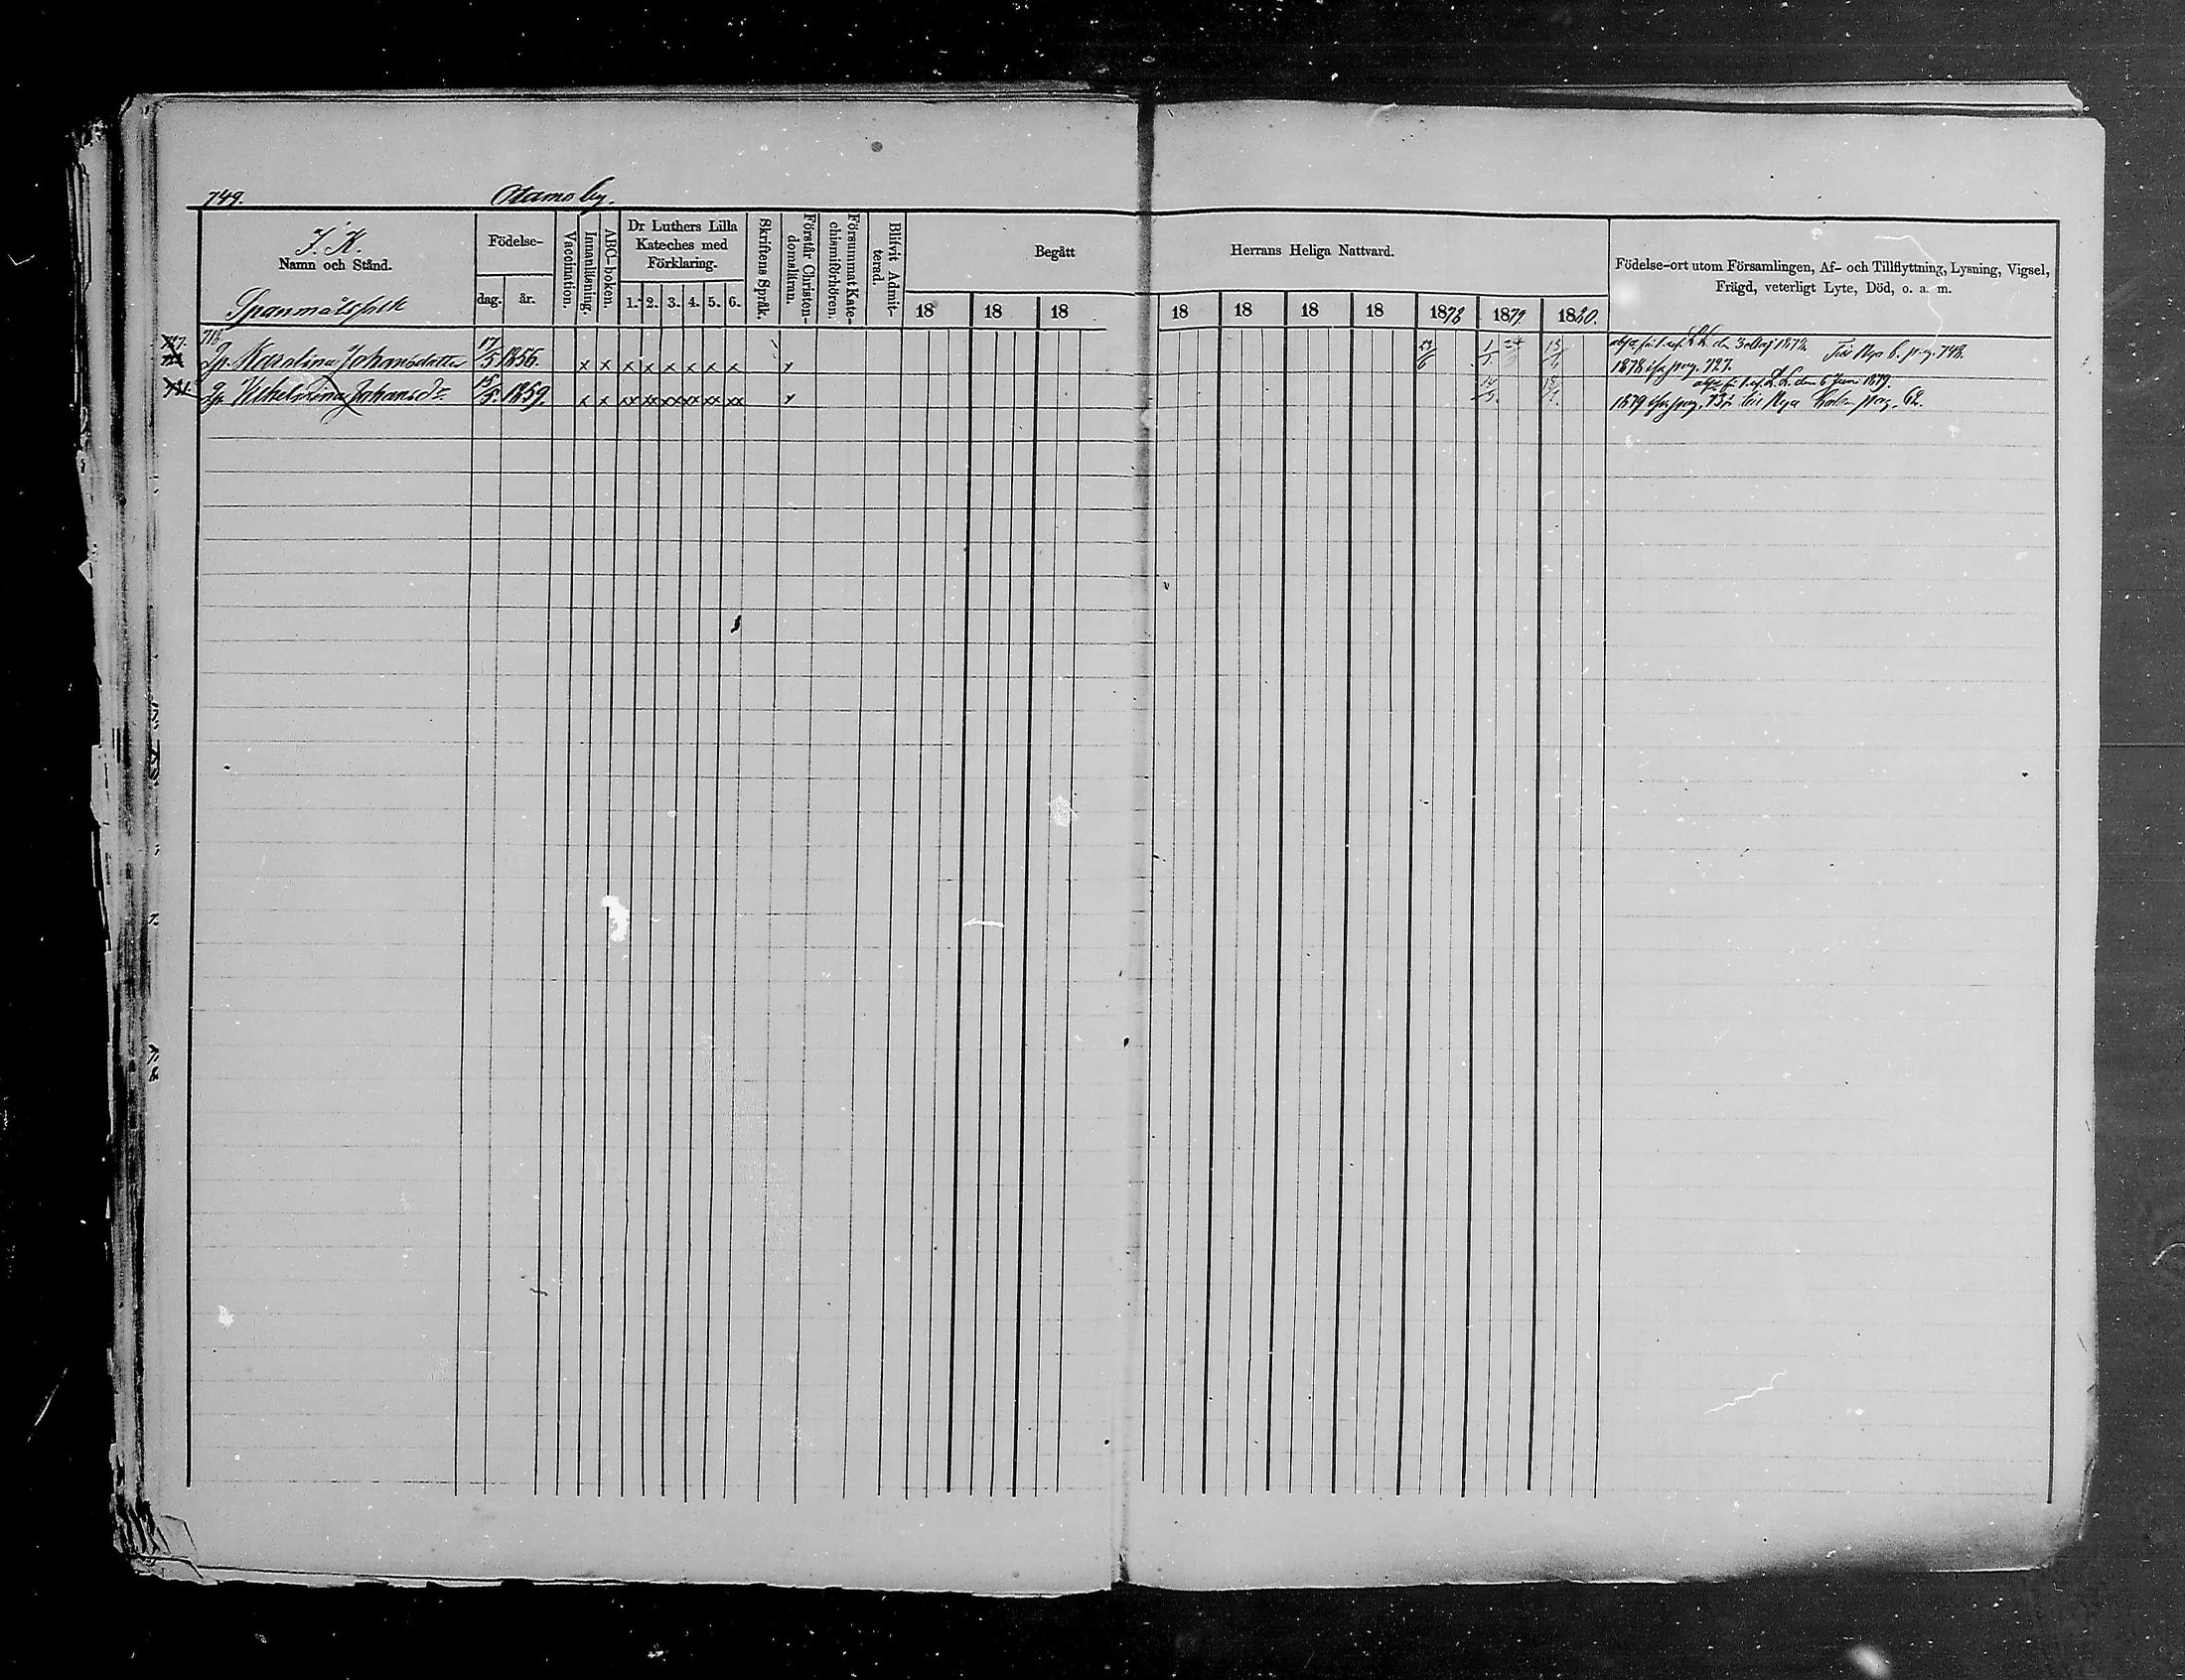 749. Stamo by.
I. K.
Namn och Stånd.
Spanmålsfolk
Födelse-
dag. år.
Vaccination.
Innanläsning.
ABC-bokon.
Dr Luthers Lilla
Kateches med
Förklaring.
1. 2. 3. 4. 5. 6.
Skriftens Språk.
Förstår Christen-
domsläran.
Försummat Kate-
chismiförhören.
Blifvit Admit-
terad.
Begått Herrans Heliga Nattvard.
18 18 18 18 18 18 18 1878 1879. 1880.
Födelse-ort utom Församlingen, Af- och Tillflyttning, Lysning, Vigsel,
Frägd, veterligt Lyte, Död, o. a. m.
727. 718
Pp. Karolina Johansdotter 17/5 1856. x x x x x x x x 23/6 Maj 1878. Till Nya b. pag. 748.
1878 ifr pag. 727.
731. Pp Vilhelmina Johansdr 15/5. 1859. x x xx xx xx xx xx xx den 6 Juni 1879.
1879 ifr pag. till Nya Boken pag. 62.